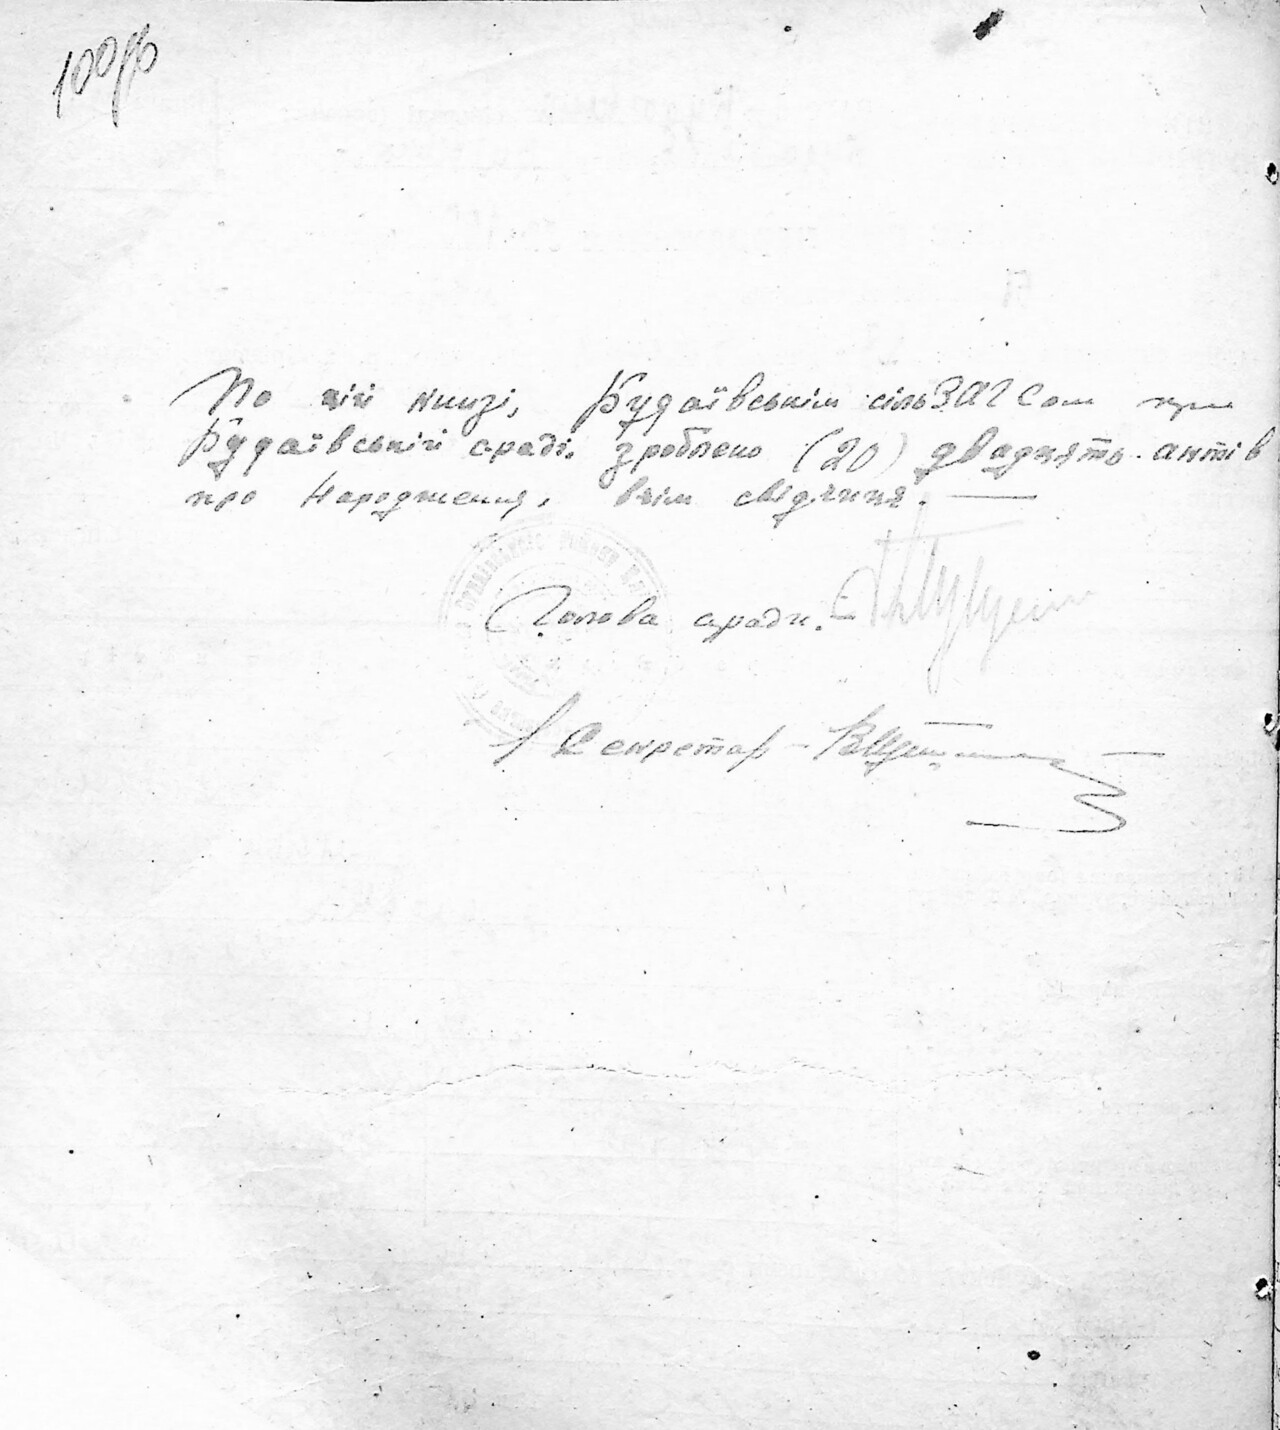 100%
По цій книзі, Будаївськім сільЗАГСом при
Будаївській с.раді. зроблено (20) двадцять. актів
про Народження, в чім свідчиня. —
Голова с.ради.
Секретар –